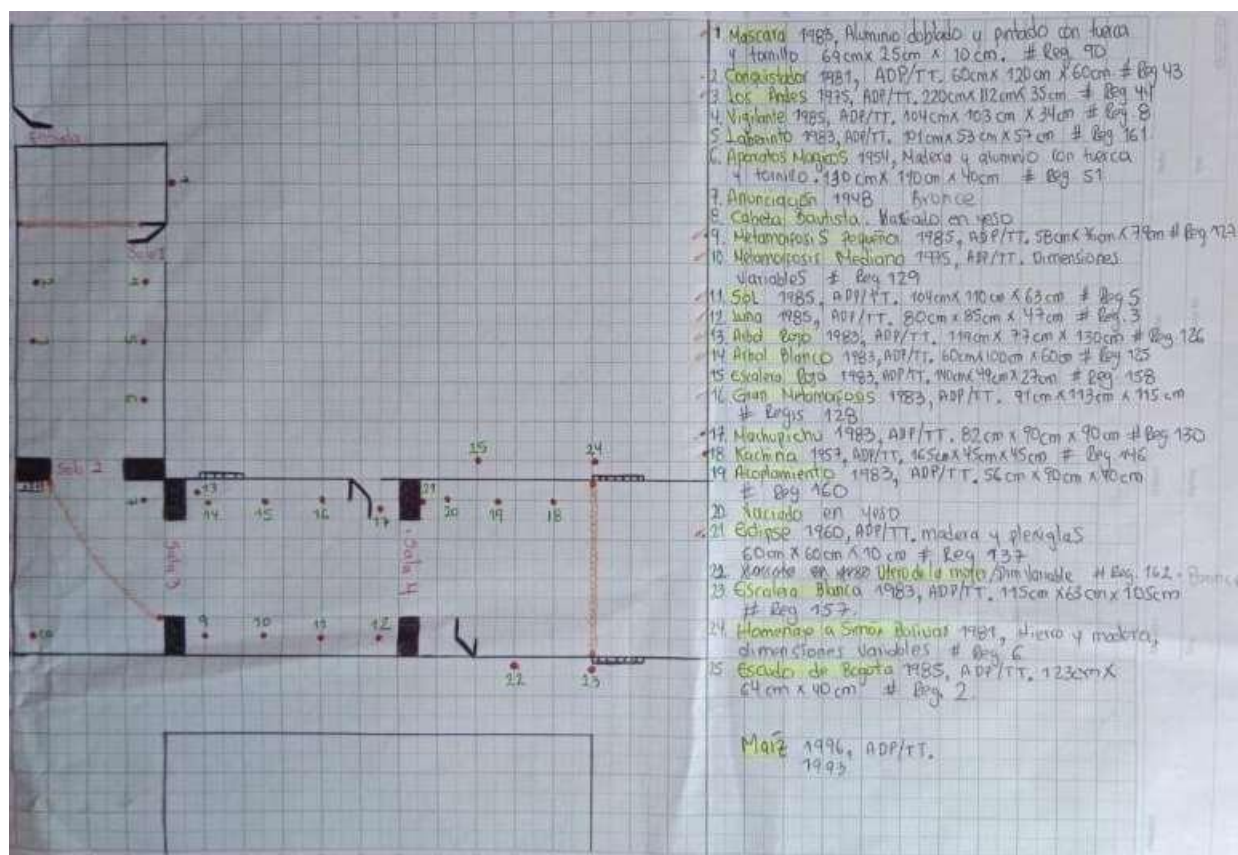 Entrada
Sala 1
Sala 2
Sala 3
Sala 4
13
14
15
16
17
21
20
19
18
25
24
9
10
11
12
22
23
1 Mascara 1983, Aluminio doblado y pintado con tuerca
y tornillo 69cm x 25cm x 10cm. # Reg 90
2 Conquistador 1981, ADP/TT. 60cm x 120cm x 60cm # Reg 43
3 Los Andes 1975, ADP/TT. 220cm x 112cm x 35cm # Reg 44
4 Vigilante 1985, ADP/TT. 104cm x 103cm x 34cm # Reg 8
5 Laberinto 1983, ADP/TT. 101cm x 53cm x 57cm # Reg 161
6. Aparatos Magicos 1954, Madera y aluminio con tuerca
y tornillo. 130cm x 110cm x 40cm # Reg 51
7. Anunciación 1948 Bronce
8. Cabeza Bautista. Vaciado en yeso
9. Metamorfosis Pequeña 1985, ADP/TT. 58cm x 79cm # Reg 127
10. Metamorfosis Mediana 1975, ADP/TT. Dimensiones
Variables # Reg 129
11. Sol 1985, ADP/TT. 104cm x 110cm x 63cm # Reg 5
12 Luna 1985, ADP/TT. 80cm x 85cm x 47cm # Reg. 3
13 Arbol Rojo 1983, ADP/TT. 119cm x 77cm x 130cm # Reg 126
14 Arbol Blanco 1983, ADP/TT. 60cm x 100cm x 60cm # Reg 125
15 Escalera Roja 1983, ADP/TT. 140cm x 49cm x 27cm # Reg 158
16 Gran Metamorfosis 1983, ADP/TT. 91cm x 113cm x 115cm
# Regis 128
17. Machupichu 1983, ADP/TT. 82cm x 90cm x 90cm # Reg 130
18 Kachina 1957, ADP/TT, 165cm x 45cm x 45cm # Reg 146
19 Acoplamiento 1983, ADP/TT. 56cm x 90cm x 40cm
# Reg 160
20. Vaciado en yeso
21 Eclipse 1960, ADP/TT. madera y plexiglas
60cm x 60cm x 10cm # Reg 137
22. en yeso Utero de la mujer/Dim Variable # Reg. 162 - Bronce
23 Escalera Blanca 1983, ADP/TT. 115cm x 63cm x 105cm
# Reg 157.
24. Homenaje a Simón Bolivar 1981, Hierro y madera,
dimensiones Variables # Reg 6
25 Escudo de Bogota 1985, ADP/TT. 123cm x
64cm x 40cm # Reg. 2
Maíz 1996, ADP/TT.
1993